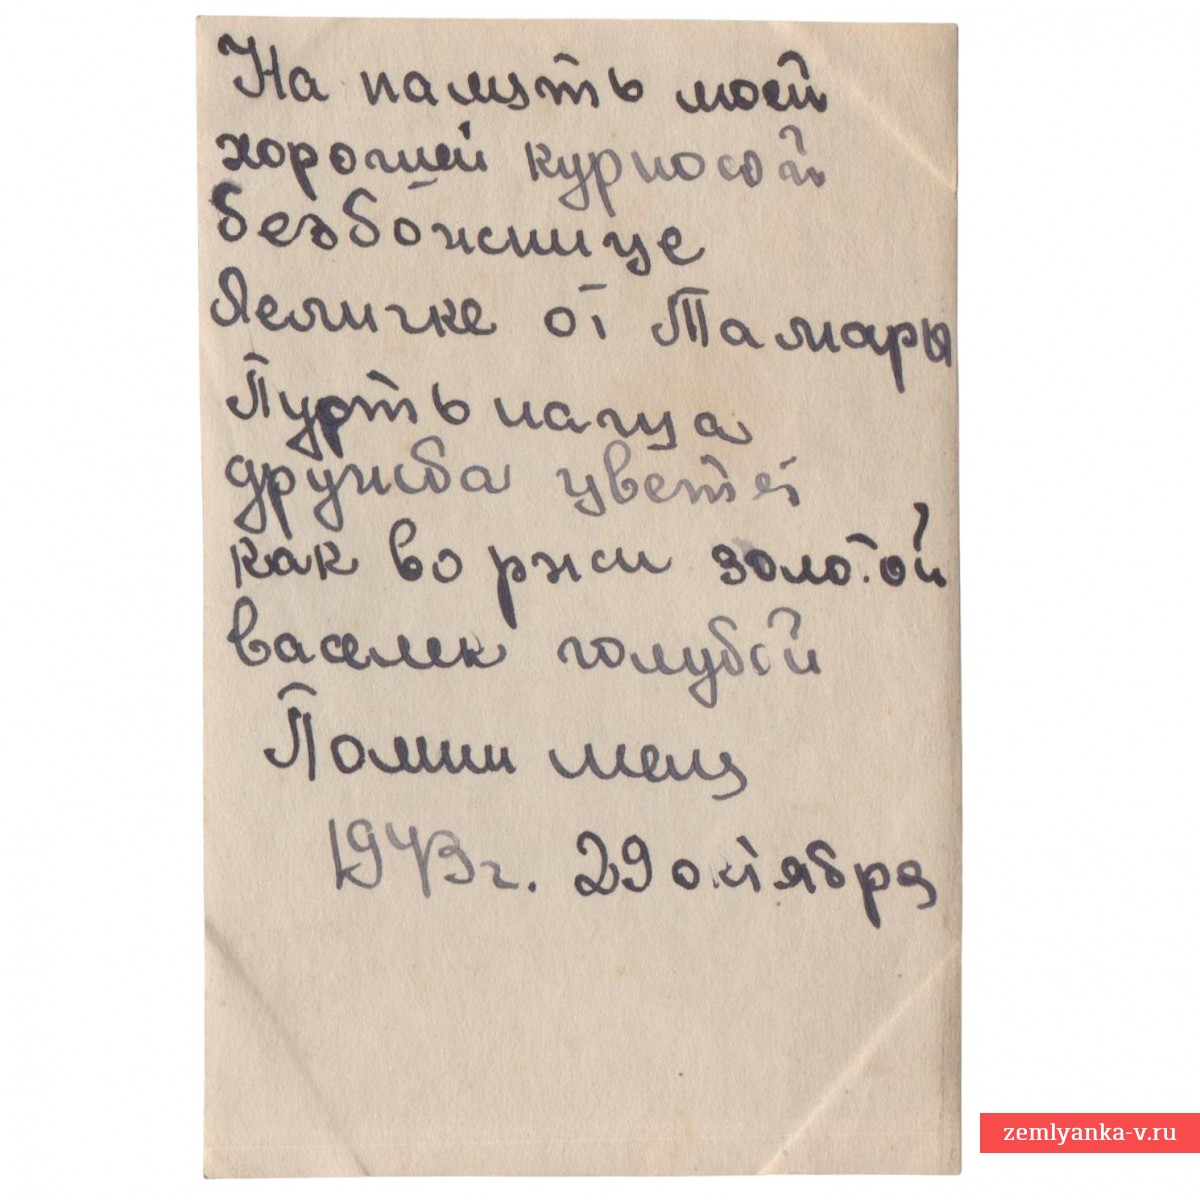 На память моей
хорошей курносой
безбожнице
Лёличке от Тамары
Пусть наша
дружба цветет
как во ржи золотой
василек голубой
Помни меня
1943 г. 29 октября
zemlyanka-v.ru